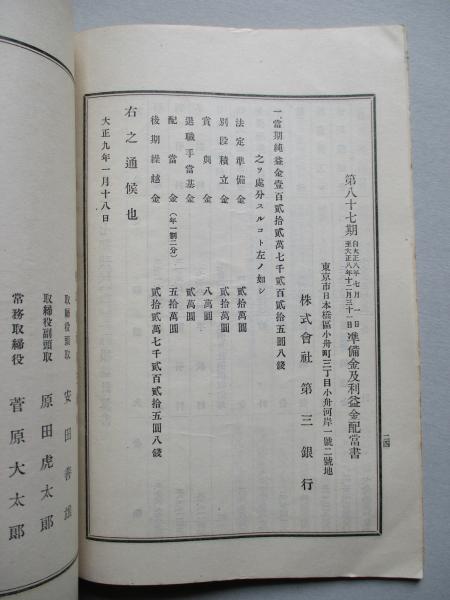 第八十七期 自大正八年七月一日至大正八年十二月三十一日 準備金及利益金配當書
東京市日本橋區小舟町三丁目小舟河岸一號二號地
株式會社第三銀行
一、當期純益金壹百貳拾貳萬七千貳百貳拾五圓八錢
之ヲ處分スルコト左ノ如シ
法定準備金 貳拾萬圓
別段積立金 貳拾萬圓
賞與金 八萬圓
退職手當基金 貳萬圓
配當金（年一割二分） 五拾萬圓
後期繰越金 貳拾貳萬七千貳百貳拾五圓八錢
右之通候也
大正九年一月十八日
取締役頭取 安田善雄
取締役副頭取 原田虎太郎
常務取締役 菅原大太郎
二四